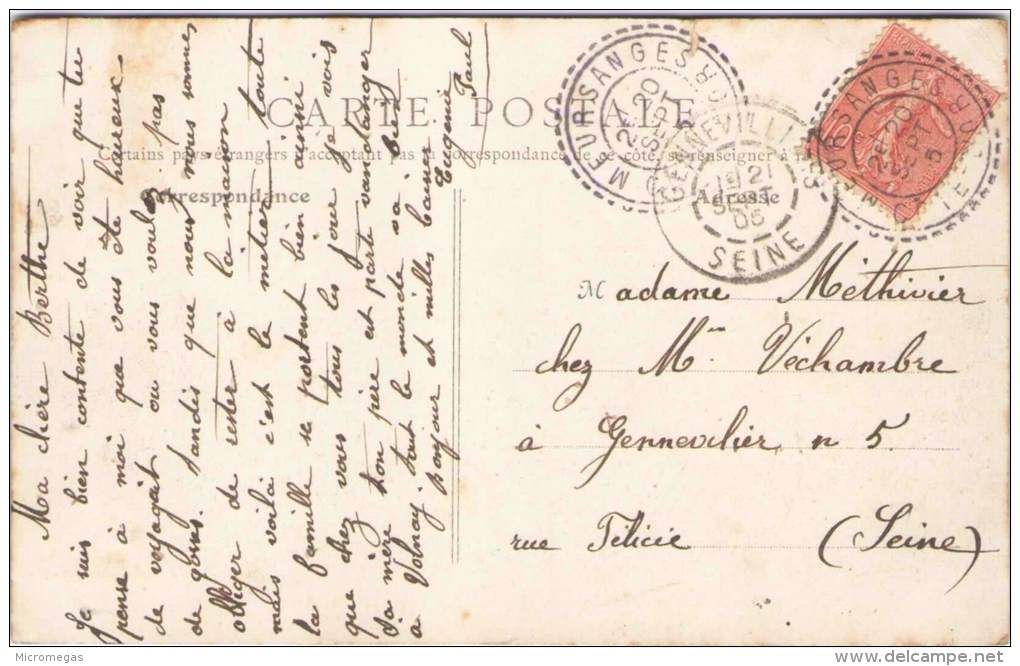 CARTE POSTALE
Certains pays étrangers n'acceptant pas la correspondance de ce côté, se renseigner à la
Correspondance
Adresse
Ma chère Berthe
Je suis bien contente de voir que tu
pense à moi que vous ête heureux
de voyagait ou vous voulez pas
de gosses. tandis que nous nous sommes
obliger de rester à la maison
mais voilà c'est le metier toute
la famille se portent bien ainsi
que chez vous tous les jour je vois
ta mère ton père est parti vandanger
a Volnay. tout le monde va bien
bonjour et milles baiser
Eugenie
Paul
Madame Méthivier
chez Mme Véchambre
à Gennevilier n 5
rue Félicie (Seine)
MEURSANGES CÔTE D'OR
2E 20 SEPT 05
GENNEVILLIERS
21 SEPT 05
SEINE
MEURSANGES CÔTE D'OR
2E 20 SEPT 05
10c
Micromegas
Delcampe.net